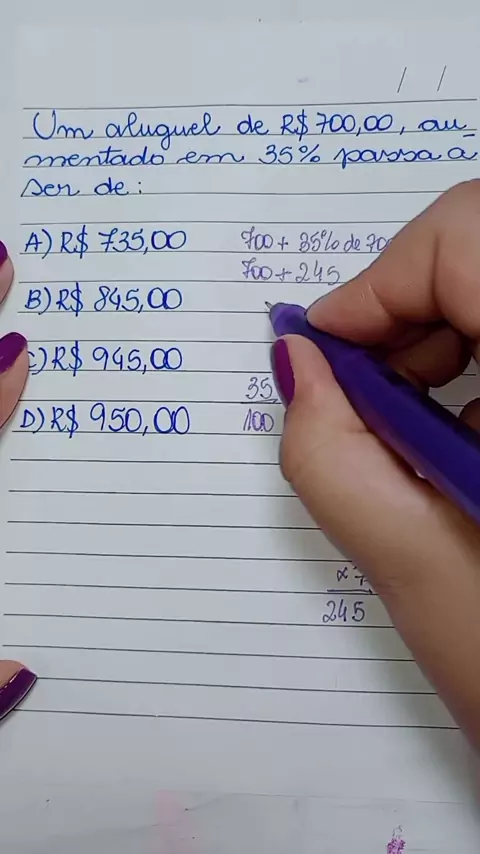 / /
Um aluguel de R$ 700,00, au-
mentado em 35% passa a
ser de:
A) R$ 735,00
700 + 35% de 70
700 + 245
B) R$ 845,00
C) R$ 945,00
35
D) R$ 950,00
100
x 7
245